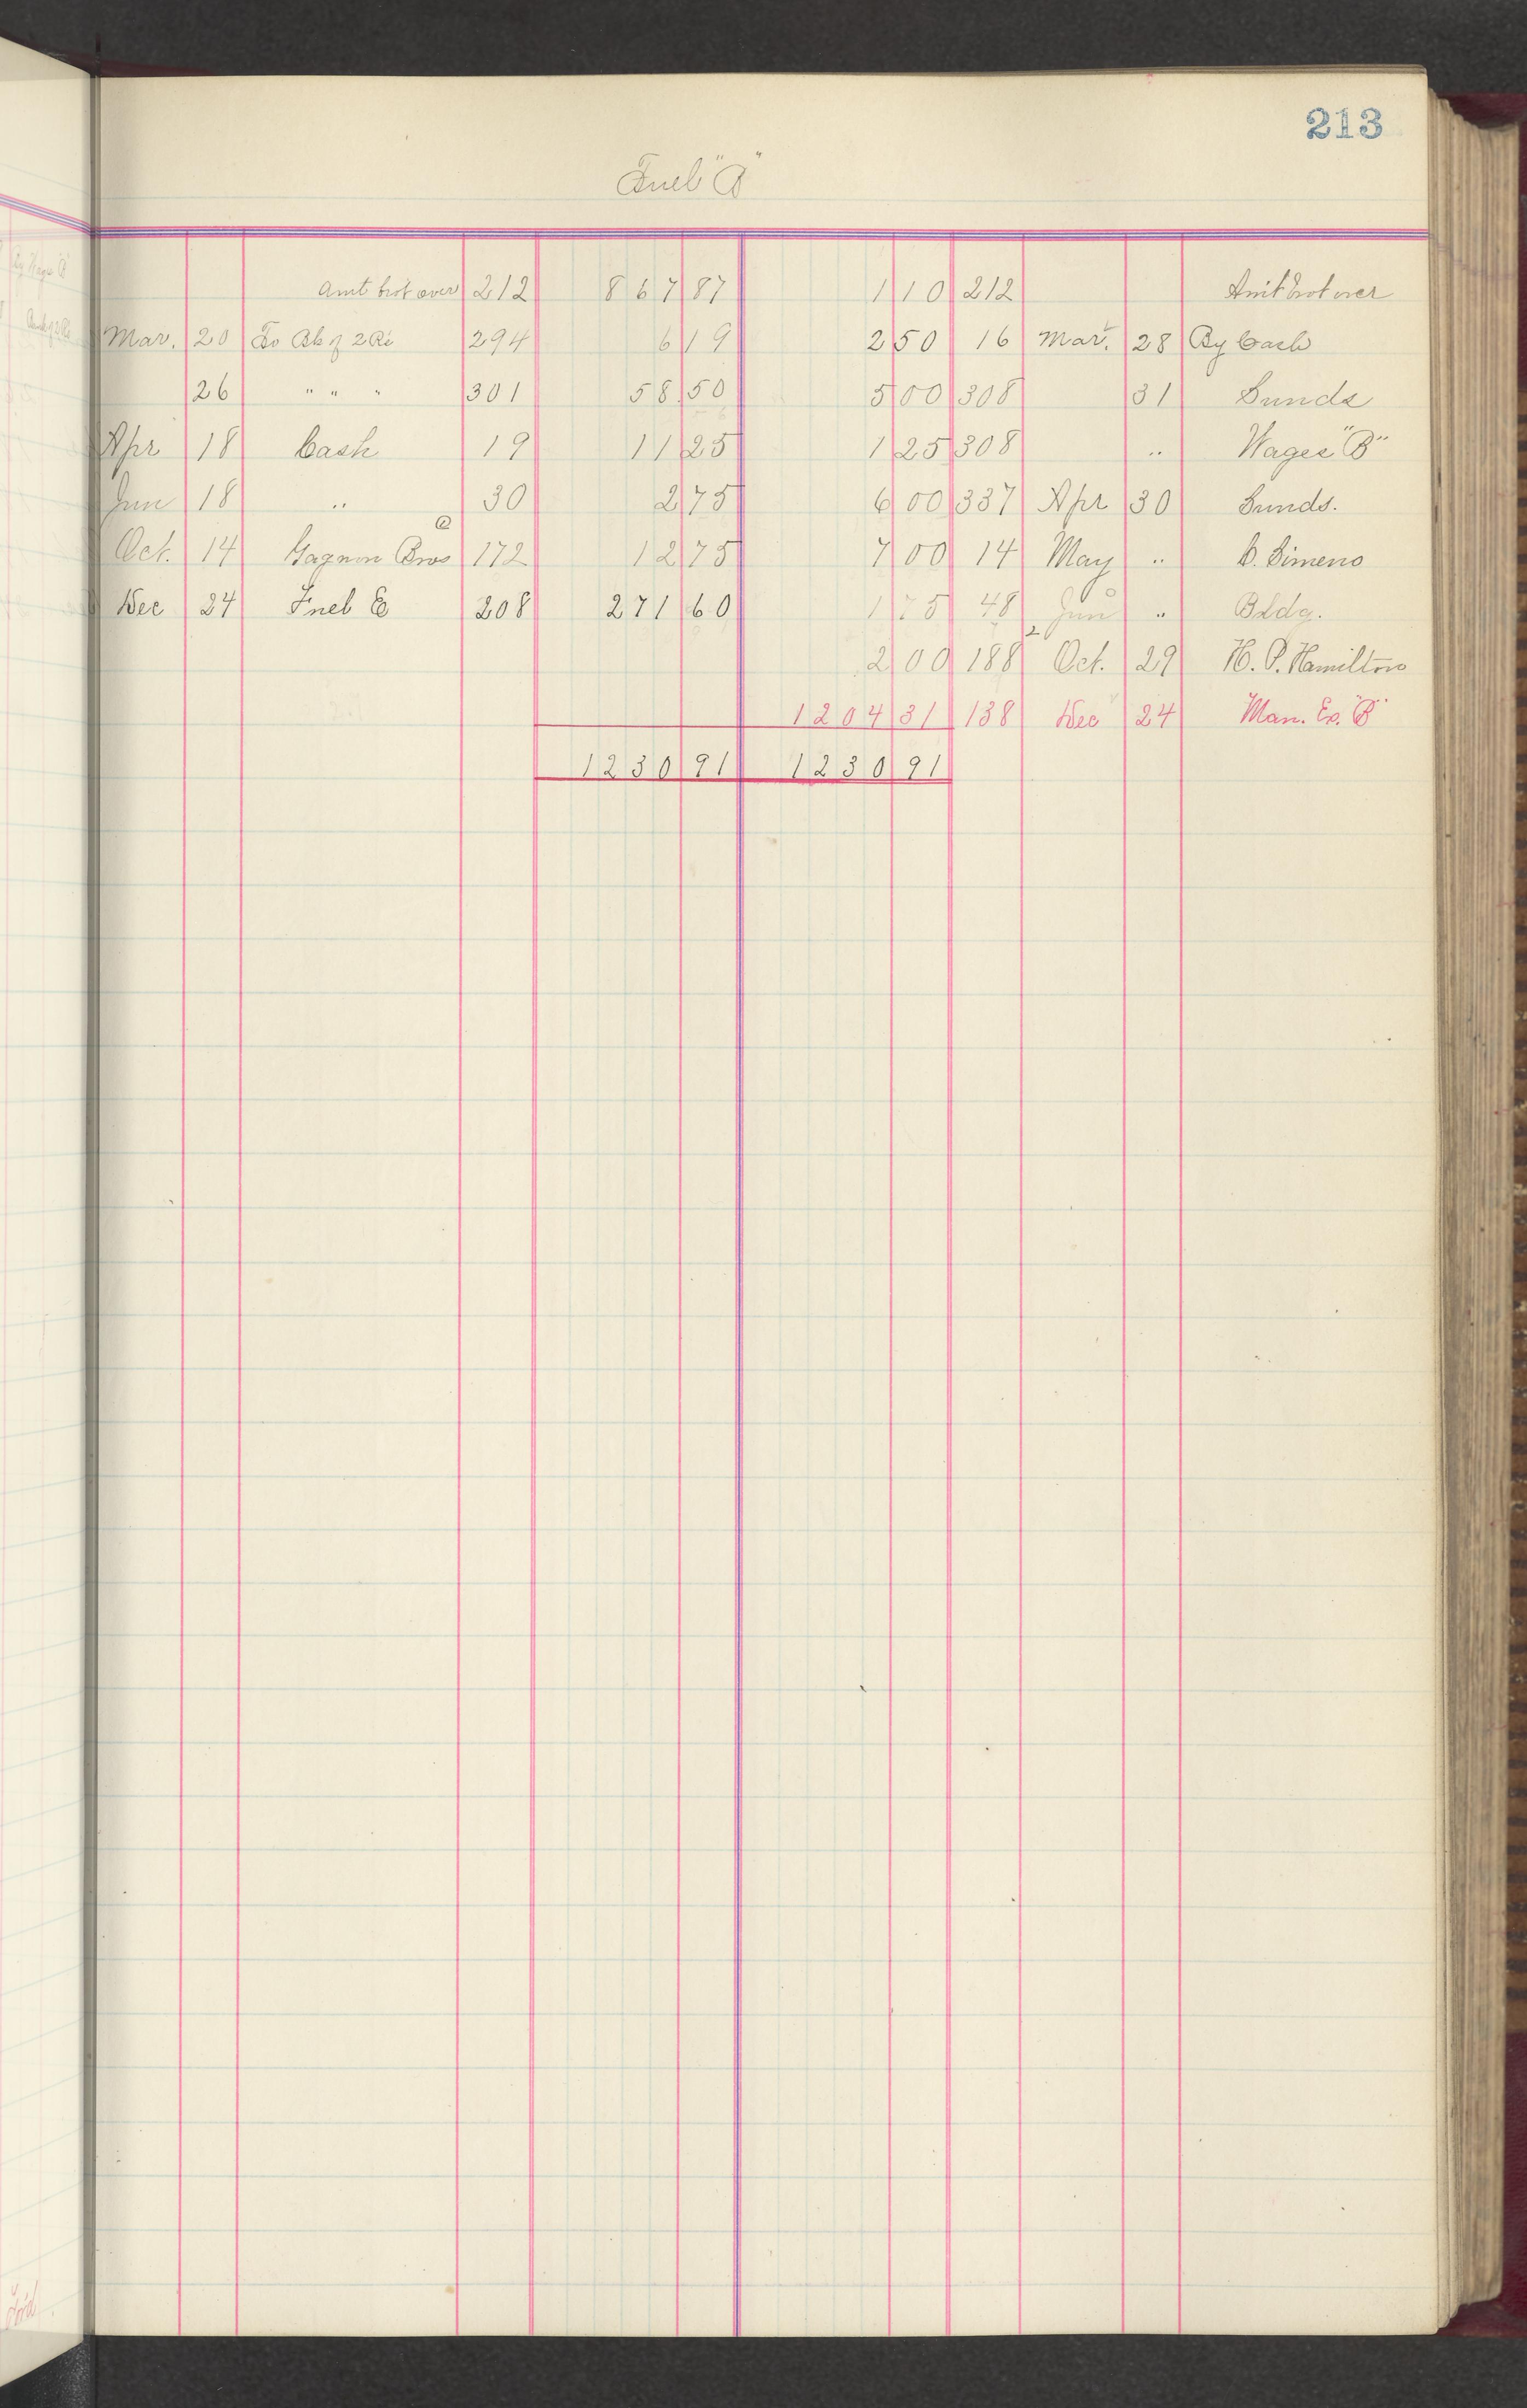 213
Fuel "A"
Amt brot over 212 867 87 1 10 212 Amt brot over
Mar. 20 To Bk of 2 Ri 294 6 19 2 50 16 Mar. 28 By Cash
26 " " " 301 58 50 5 00 308 31 Sunds
Apr 18 Cash 19 11 25 1 25 308 " Wages "B"
Jun 18 " 30 2 75 6 00 337 Apr 30 Sunds.
Oct. 14 Gagnon Bros 172 12 75 7 00 14 May " D. Simeno
Dec 24 Fuel E 208 271 60 1 75 48 Jun " Bldg.
2 00 188 Oct. 29 H. P. Hamilton
1204 31 138 Dec 24 Man. Ex. "B"
1230 91 1230 91